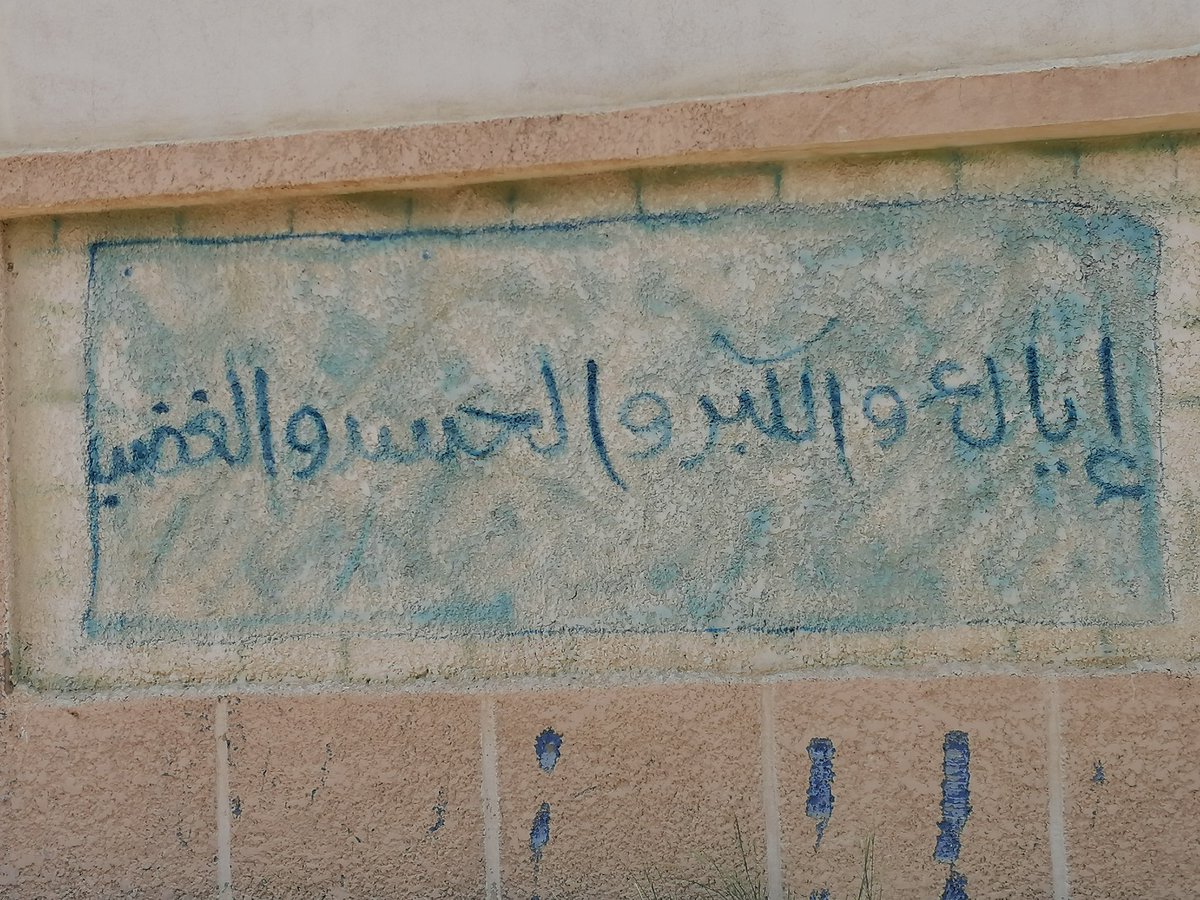 إياك والكبر والحسد والغضب